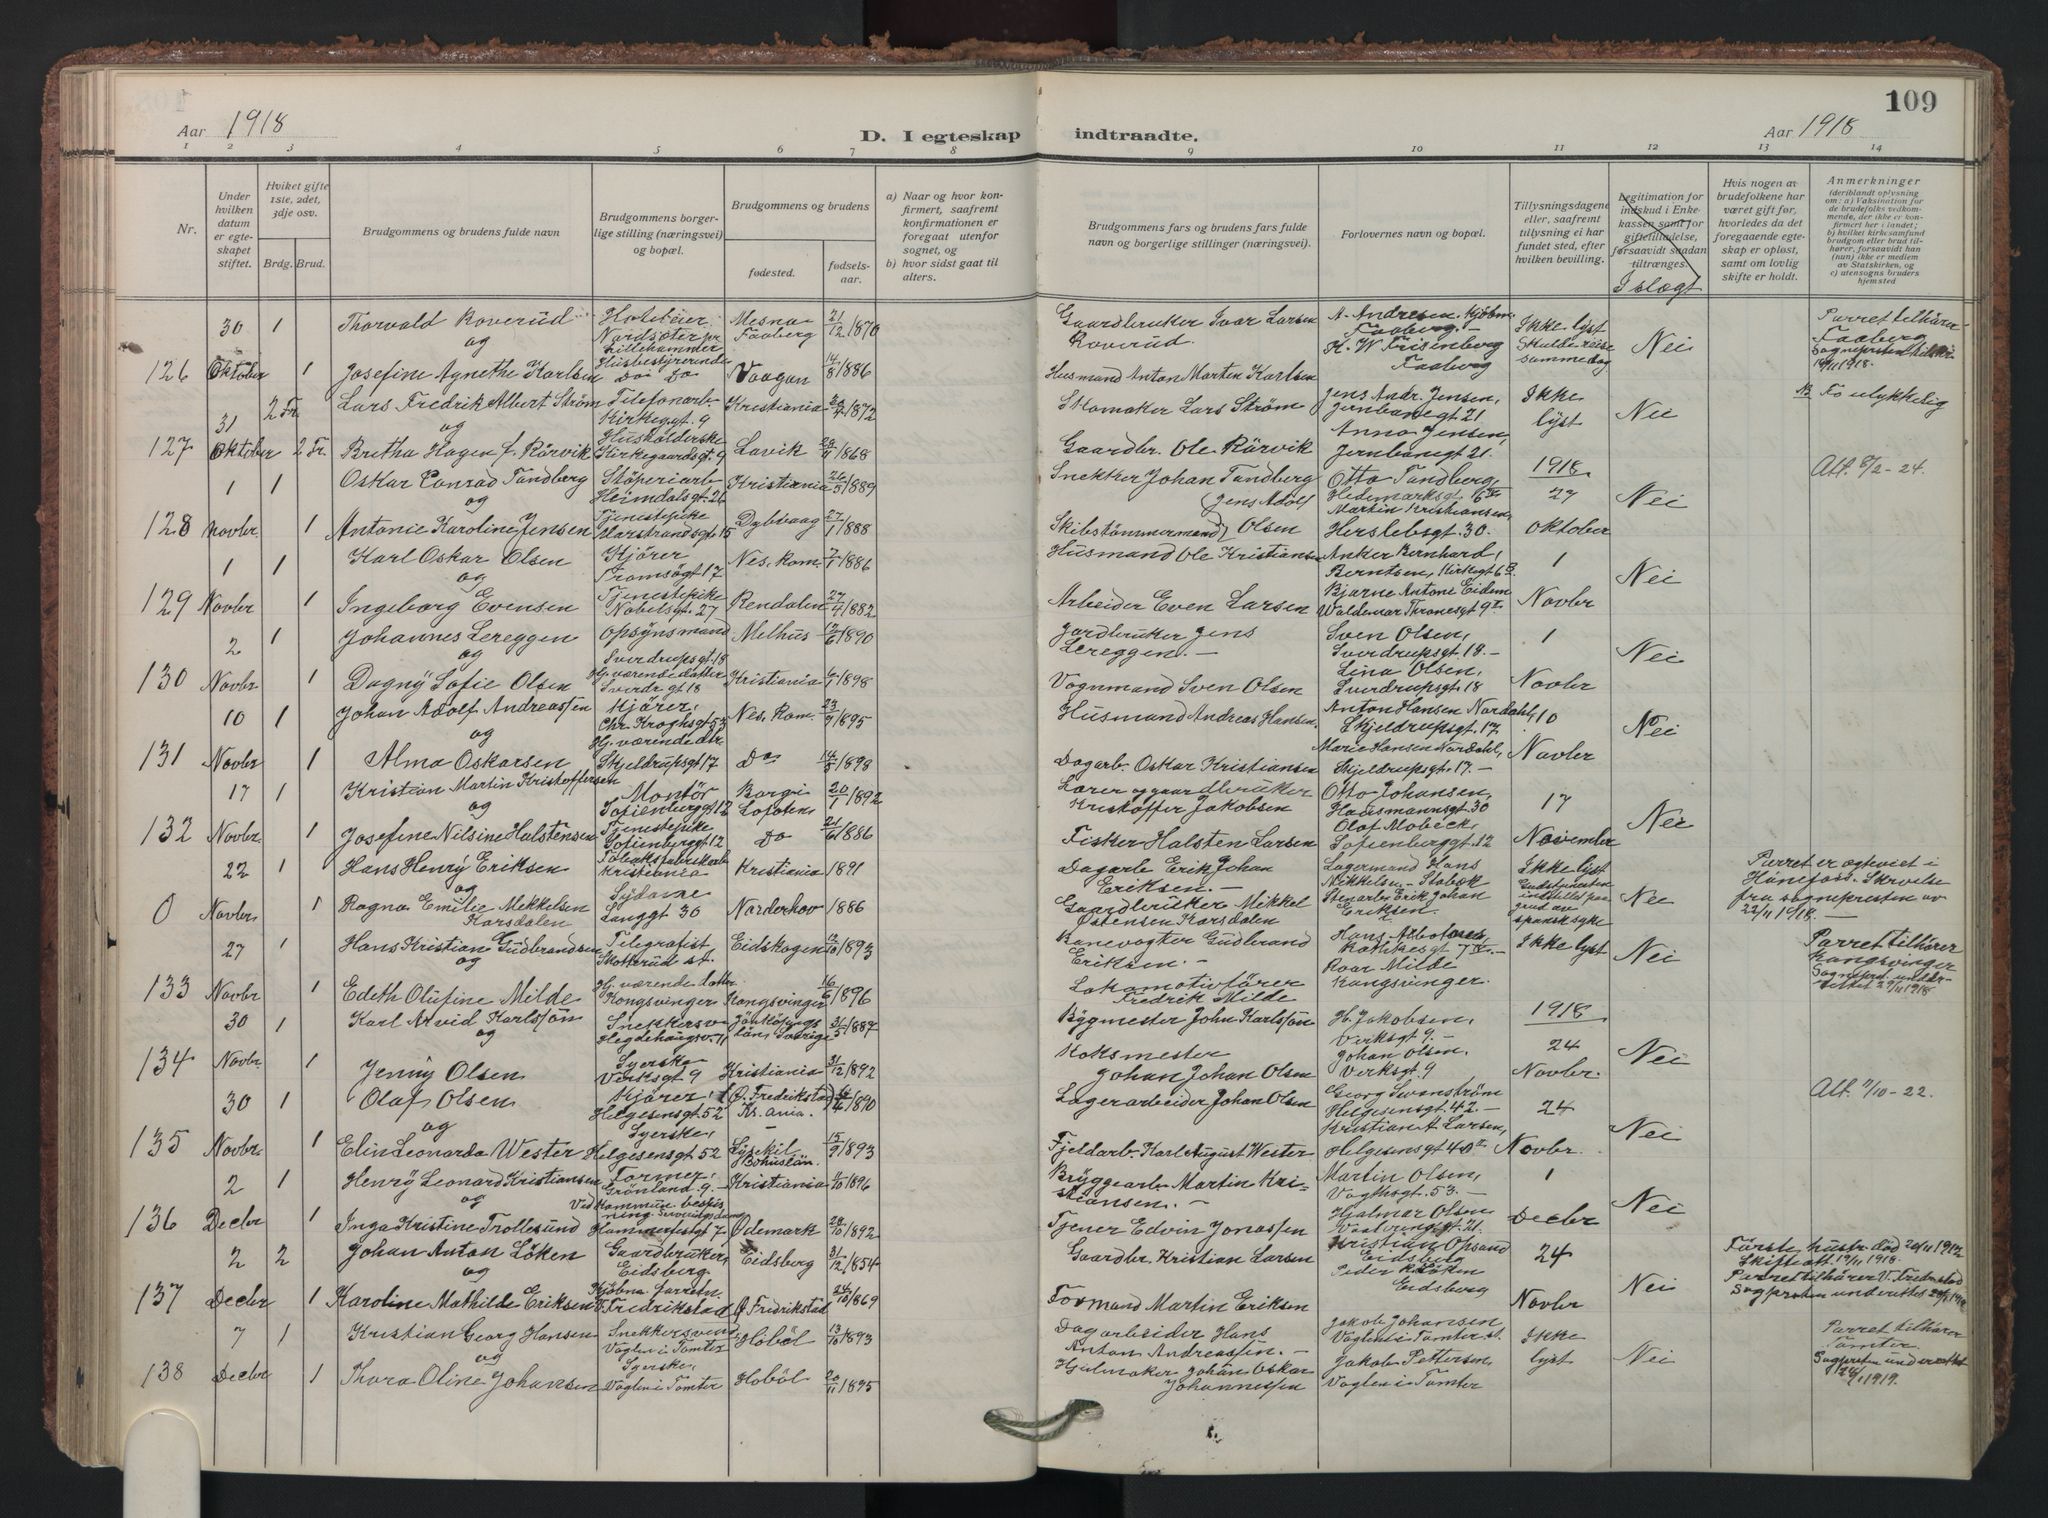 109
Aar 1918
D. I egteskap indtraadte.
Aar 1918
1 2 3 4 5 6 7 8 9 10 11 12 13 14
Nr.
Under hvilken datum er egteskapet stiftet.
Hviket gifte 1ste, 2det, 3dje osv.
Brdg. Brud.
Brudgommens og brudens fulde navn
Brudgommens borgerlige stilling (næringsvei) og bopæl.
Brudgommens og brudens
fødested.
fødselsaar.
a) Naar og hvor konfirmert, saafremt konfirmationen er foregaat utenfor sognet, og
b) hvor sidst gaat til alters.
Brudgommens fars og brudens fars fulde navn og borgerlige stillinger (næringsvei).
Forlovernes navn og bopæl.
Tillysningsdagene eller, saafremt tillysning ei har fundet sted, efter hvilken bevilling.
Legitimation for indskud i Enkekassen samt for giftetilladelse, forsaavidt saadan tiltrænges.
I slegt
Hvis nogen av brudefolkene har været gift før, hvorledes da det foregaaende egteskap er opløst, samt om lovlig skifte er holdt.
Anmerkninger
(deriblandt oplysning om: a) Vaksination for de brudefolks vedkommende, der ikke er konfirmert her i landet;
b) hvilket kirkesamfund brudgom eller brud tilhører, forsaavidt han (hun) ikke er medlem av Statskirken, og
c) utensogns bruders hjemsted
126 30 Oktober 1 Thorvald Roverud Hoteleier Nordsæter pr Lillehammer Mesna Faaberg 21/12 1870 Gaardbruker Ivar Larsen Roverud A. Andresen Kjøbm. Faaberg. K. W. Frisenberg Faaberg Ikke lyst Skulde reise samme dag Nei Parret tilhører Faaberg
og 1 Josefine Agnethe Karlsen Husbestyrerinde Do Do Vaagan 14/8 1886 Husmand Anton Marten Karlsen
127 31 Oktober 2 Fr. Lars Fredrik Albert Strøm Telefonarb Kirkegt. 9 Kristiania 1872 Skomaker Lars Strøm Jens Andr. Jensen, Jernbanegt 21 Anna Jensen, Jernbanegt 21. Ikke lyst Nei Fø ulykkelig
og 2 Fr. Bretha Hagen f. Rørvik Husholderske Kirkegaardsgt. 9 Lavik 1868 Gaardbr. Ole Rørvik Att. 8/2-24.
128 1 Novbr 1 Oskar Conrad Tandberg Støperiarb Heimdalsgt. 26 Kristiania 26/5 1889 Snekker Johan Tandberg Otto Tandberg, Hedemarksgt. 6 Martin Kristiansen, Herslebsgt. 30. 1918 27 Oktober Nei
og 1 Antonie Karoline Jensen Tjenestepike Marstrandsgt 15 Dybvaag 27/1 1888 Skibstømmermand Jens Adolf Olsen
129 1 Novbr 1 Karl Oskar Olsen Kjører Tromsøgt 17 Nes. Rom. 7/1 1886 Husmand Ole Kristiansen Anker Bernhard Berntsen, Kirkegt 6 B. Bjarne Antoni Eidem Waldemar Thranesgt 9 1 Novbr Nei
og 1 Ingeborg Evensen Tjenestepike Nobelsgt. 27 Rendalen 27/4 1882 Arbeider Even Larsen
130 2 Novbr 1 Johannes Lereggen Opsynsmand Sverdrupsgt. 18 Melhus 12/6 1890 Jardbruker Jens Lereggen. Sven Olsen, Sverdrupsgt. 18. Lina Olsen, Sverdrupsgt. 18 1 Novbr Nei
og 1 Dagny Sofie Olsen Hj. værende datter Sverdr gt 18 Kristiania 6/1 1898 Vognmand Sven Olsen
131 10 Novbr 1 Johan Adolf Andreassen Kjører, Chr. Kroghsgt 53 Nes. Rom. 23/9 1895 Husmand Andreas Hansen Anton Hansen Nordahl, Skjeldrupsgt. 17. Marie Hansen Nordahl, Skjeldrupsgt. 17. 10 Novbr Nei
og 1 Alma Oskarsen Hj. værende dtr. Skjeldrupsgt 17 Do 14/5 1898 Dagarb. Oskar Kristiansen
132 17 Novbr 1 Kristian Martin Kristoffersen Montør Sofienberggt 12 Borge Lofoten 20/1 1892 Lærer og gaardbruker Kristoffer Jakobsen Otto Johansen, Hausmannsgt. 30 Olaf Mobeck, Sofienberggt. 12 17 November Nei
og 1 Josefine Nilsine Halstensen Tjenestepike Sofienberggt 12 Do 21/6 1886 Fisker Halsten Larsen
0 22 Novbr 1 Hans Henry Eriksen Tobaksfabrikarb Kristiania Kristiania 1891 Dagarb Erik Johan Eriksen. Lagermand Hans Mikkelsen - Stabæk Stenarb. Erik Johan Eriksen. Ikke lyst Gudstjenesten indstillet paa grund av spansk syke Nei Parret er egteviet i Hønefoss. Skrivelse fra sognepresten av 22/11 1918.
og 1 Ragna Emilie Mekkelsen Karsdalen Sydame Langgt 30 Norderhov 1886 Gaardbruker Mikkel Østensen Karsdalen
133 27 Novbr 1 Hans Kristian Gudbrandsen Telegrafist Skotterud st. Eidskogen 12/10 1893 Banevogter Gudbrand Eriksen. Hans Roar Milde Kongsvinger. Ikke lyst Nei Parret tilhører Kongsvinger
og 1 Edeth Olufine Milde Hj. værende datter Kongsvinger Kongsvinger 16/6 1896 Lokomotivfører Fredrik Milde
134 30 Novbr. 1 Karl Arvid Karlssøn Snekkersv Hegdehaugsv. 11 Jönköpings län, Sverige 31/5 1887 Bygmester John Karlssøn H. Jakobsen, Verksgt 9. Johan Olsen. Verksgt. 9 1918 24 Novbr. Nei
og 1 Jenny Olsen Syerske Verksgt 9 Kristiania 31/12 1892 Koksmester Johan Johan Olsen
135 30 Novbr. 1 Olaf Olsen Kjører, Helgesensgt. 52 (Ø. Fredrikstad) Kr.ania. 1890 Lagerarbeider Johan Olsen Georg Svenstrøm Helgesensgt. 42. Kristian A Larsen, Helgesensgt 40 24 Novbr. Nei Att. 7/10-22.
og 1 Elin Leonarda Wester Syerske, Helgesensgt 52 Lysekil Bohuslän. 15/9 1893 Fjeldarb. Karl August Wester
136 2 Decbr 1 Henry Leonard Kristiansen Former, Grønland 9. Kristiania 11/10 1896 Bryggearb Martin Kristiansen. Martin Olsen, Vogtsgt. 53. Hjalmar Olsen 1 Decbr Nei
og 1 Inga Kristine Trollesund Ved kommun. bespisning Hammerfestgt 7 Ødemark 1892 Tjener Edvin Jonassen
137 2 Decbr 2 Johan Anton Løken Gaardbruker, Eidsberg. Eidsberg 31/12 1854 Gaardbr. Kristian Larsen Kristian Opsund Eidsberg Peder K. Løken Eidsberg 24 Novbr Nei Første hustr. død 20/11 1912 Skifteatt. 19/11 1918. Parret tilhører V. Fredrikstad
og 1 Karoline Mathilde Eriksen Kjøbm. forretn. V. Fredrikstad Ø. Fredrikstad 24/10 1869 Formand Martin Eriksen
138 7 Decbr 1 Kristian Georg Hansen Snekkersvend, Voglen i Tomter Hobøl 13/10 1893 Dagarbeider Hans Anton Andreassen. Jakob Johansen, Voglen i Tomter st. Jakob Pettersen, Voglen i Tomter Ikke lyst Nei Parret tilhører Tomter. Sogpresten underrettet
og 1 Thora Oline Johansen Syerske, Voglen i Tomter Hobøl 20/11 1895 Hjulmaker Johan Oskar Johannessen